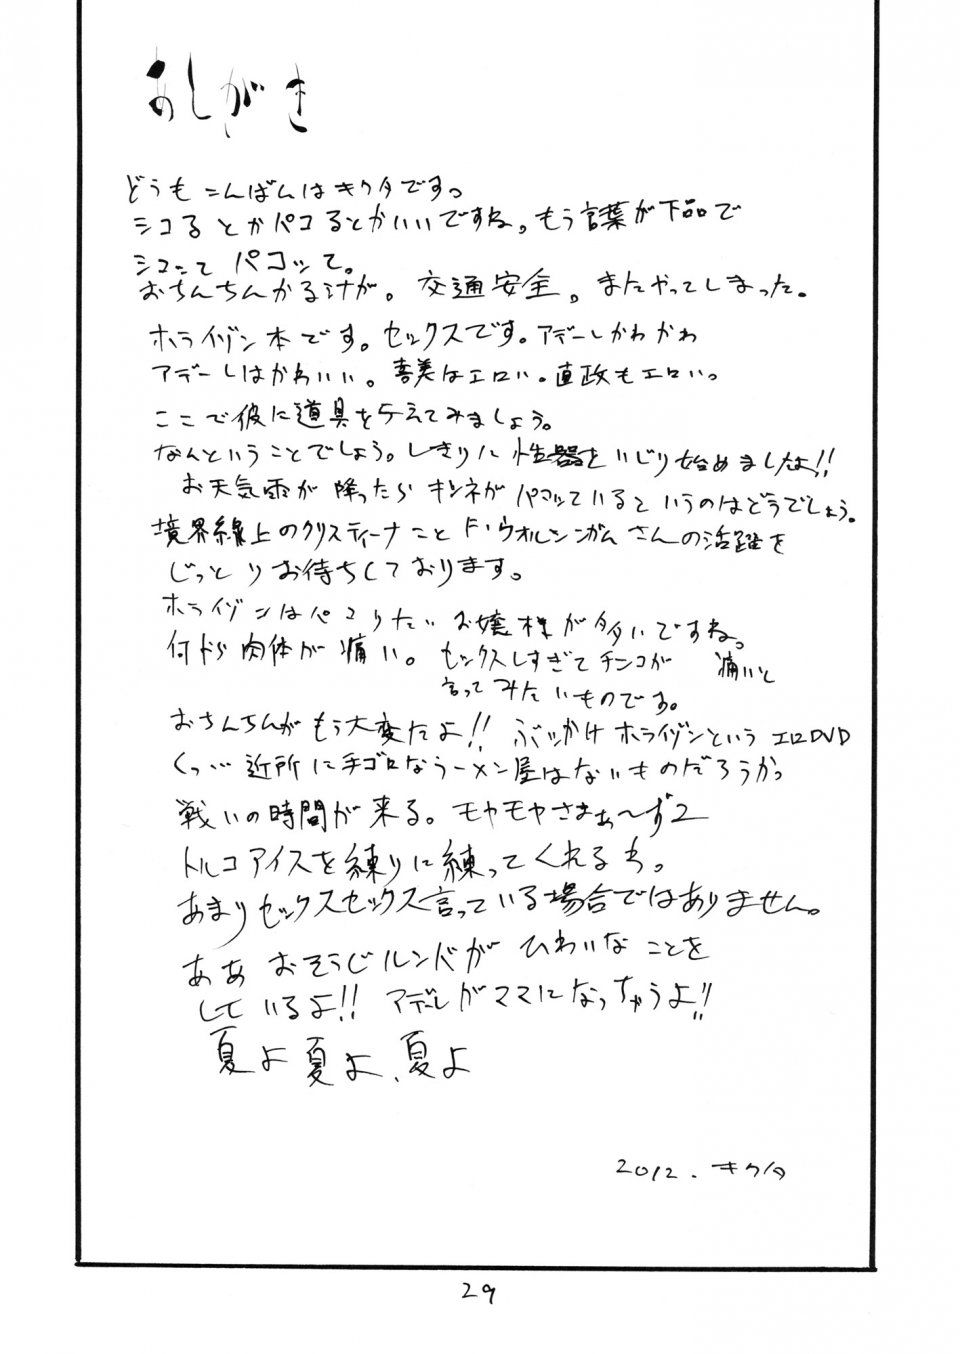 あしがき
どうもこんばんはキクタです。
シコるとかパコるとかいいですね。もう言葉が下品で
シコって パコッて。
おちんちんかる汁が。交通安全。またやってしまった。
ホライゾン本です。セックスです。アデーレかわかわ
アデーレはかわいい。喜美はエロい。直政もエロい。
ここで彼に道具を与えてみましょう。
なんということでしょう。しきりに性器をいじり始めましたよ!!
お天気雨が降ったらキツネがパコッているというのはどうでしょう。
境界線上のクリスティーナこと F・ウォルシンガムさんの活躍を
じっとりお待ちしております。
ホライゾンはパコりたいお嬢様が多いですね。
何ドラ肉体が痛い。セックスしすぎてチンコが痛いと
言ってみたいものです。
おちんちんがもう大変だよ!! ぶっかけホライゾンというエロDVD
くっ…近所に手ゴロなラーメン屋はないものだろうか。
戦いの時間が来る。モヤモヤさまぁ〜ず2
トルコアイスを練りに練ってくれるわ。
あまりセックスセックス言っている場合ではありません。
ああ おそうじルンバが ひわいなことを
しているよ!! アデーレがママになっちゃうよ!!
夏よ 夏よ、夏よ
2012. キクタ
29